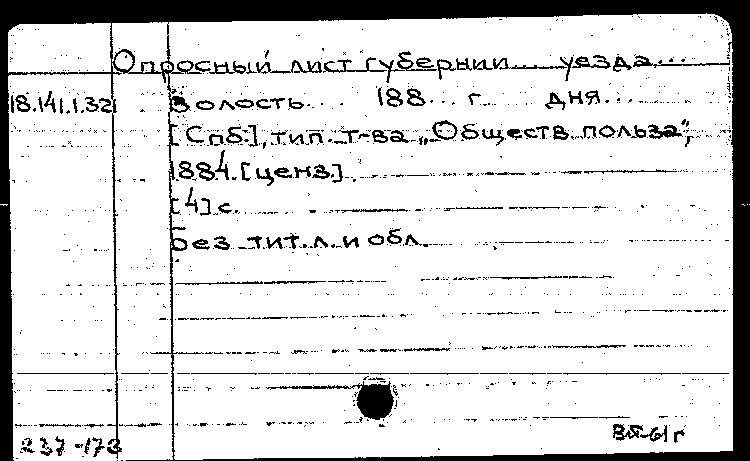 Опросный лист губернии... уезда...
18.141.1.32 волость... 188... г. дня...
[Спб.], тип. т-ва „Обществ. польза",
1884. [ценз.]
[4] с.
Без тит. л. и обл.
237-173